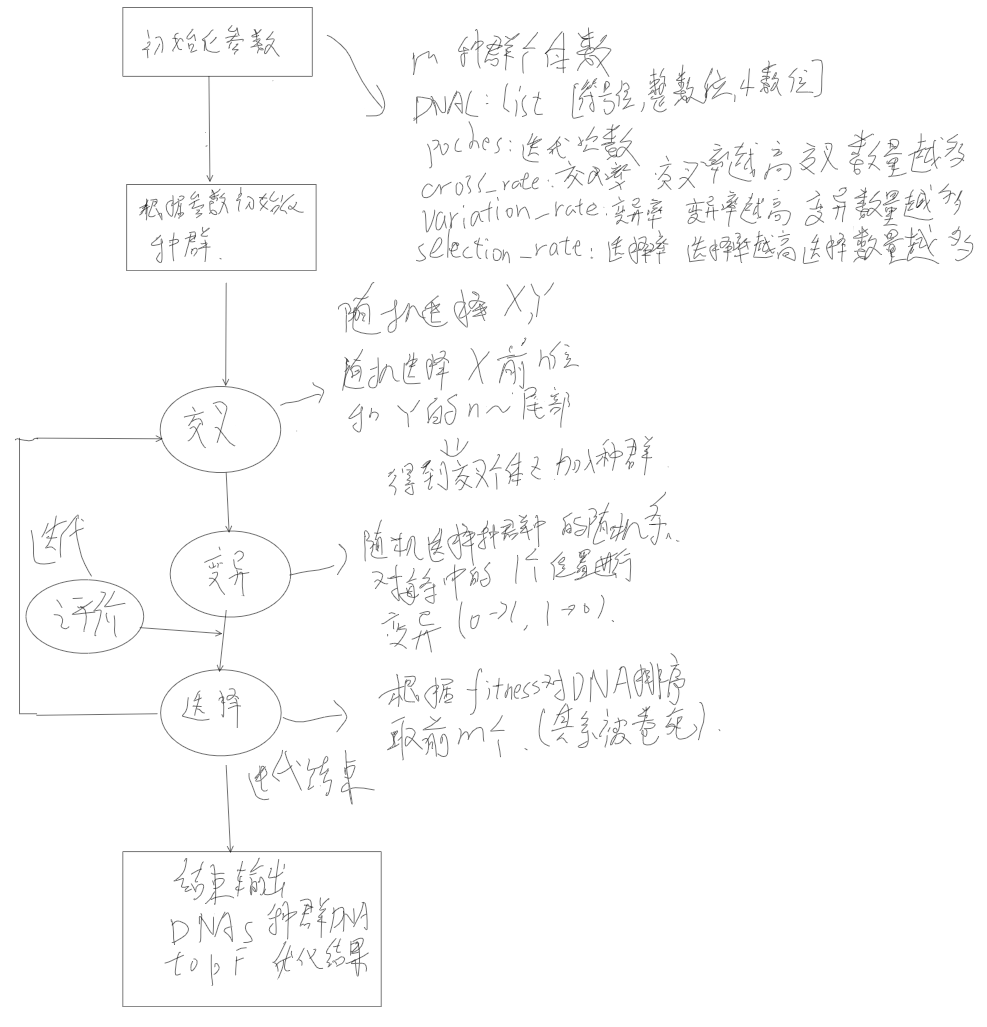 初始化参数
m 种群个体数
DNAL: list [符号位,整数位,小数位]
poches: 迭代次数
cross_rate: 交叉率 交叉率越高交叉数量越多
variation_rate: 变异率 变异率越高 变异数量越多
selection_rate: 选择率 选择率越高选择数量越多
根据参数初始化
种群.
随机选择 X,Y
随机选择 X 前n位
和 Y的n~尾部
得到交叉个体Z 加入种群
交叉
迭代
随机选择种群中的随机条.
对每条中的 1个位置进行
变异 (0→1, 1→0).
变异
评价
选择
根据 fitness对DNA排序
取前m个. (其余被卷死).
迭代结束
结束输出
DNAs 种群DNA
topF 优化结果